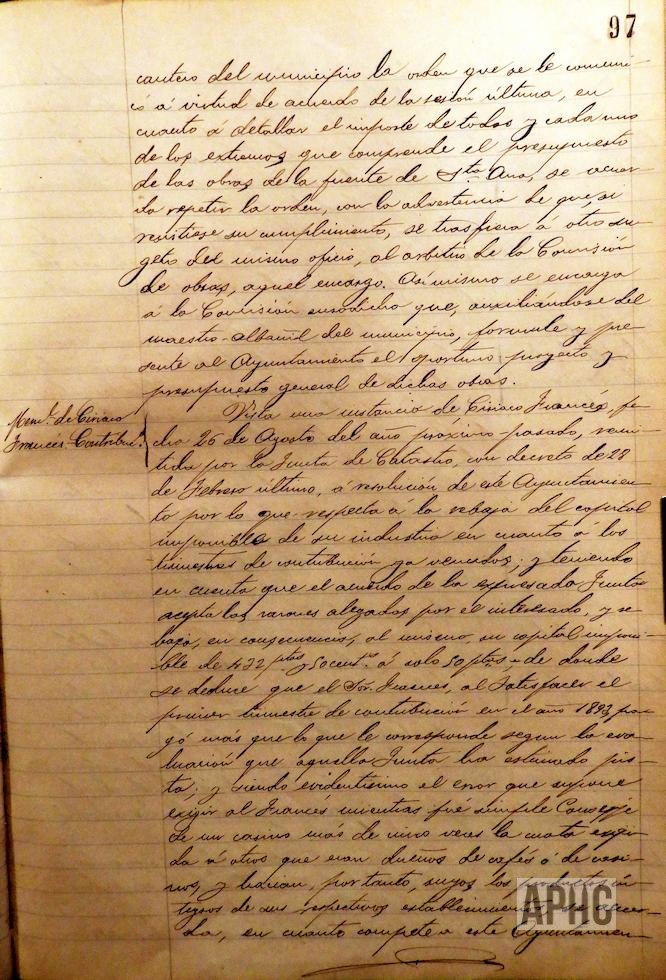 97
cantero del municipio la orden que se le comuni-
có á virtud de acuerdo de la sesión última, en
cuanto á detallar el importe de todos y cada uno
de los extremos que comprende el presupuesto
de las obras de la fuente de Sta. Ana, se acuer-
da repetir la orden, con la advertencia de que si
resistiese su cumplimiento, se trasfiera á otro su-
geto del mismo oficio, al arbitrio de la Comisión
de obras, aquel encargo. Asimismo se encarga
á la Comisión susodicha que, auxiliandose del
maestro-albañil del municipio, formule y pre-
sente al Ayuntamiento el oportuno proyecto y
presupuesto general de dichas obras.
Ciriaco
Francés. Contribuc.
Vista una instancia de Ciriaco Francés, fe-
cha 26 de Agosto del año próximo pasado, remi-
tida por la Junta de Catastro, con decreto de 28
de Febrero último, á resolución de este Ayuntamien-
to por lo que respecta á la rebaja del capital
imponible de su industria en cuanto á los
trimestres de contribución ya vencidos; y teniendo
en cuenta que el acuerdo de la expresada Junta
acepta las razones alegadas por el interesado, y se
baja, en consecuencia, al mismo, su capital imponi-
ble de 432 ptas y 50 cents. á solo 50 ptas, de donde
se deduce que el Sor. Francés, al satisfacer el
primer trimestre de contribución en el año 1893, pa-
gó más que lo que le corresponde segun la eva-
luación que aquella Junta ha estimado jus-
ta; y siendo evidentísimo el error que supone
exigir al Francés mientras fué simple Conserje
de un casino más de nueve veces la cuota exigi-
da á otros que eran dueños de cafés ó de casi-
nos, y hacian, por tanto, suyos los productos ín-
tegros de sus respectivos establecimientos se acuer-
da, en cuanto compete á este Ayuntamien-
APHC